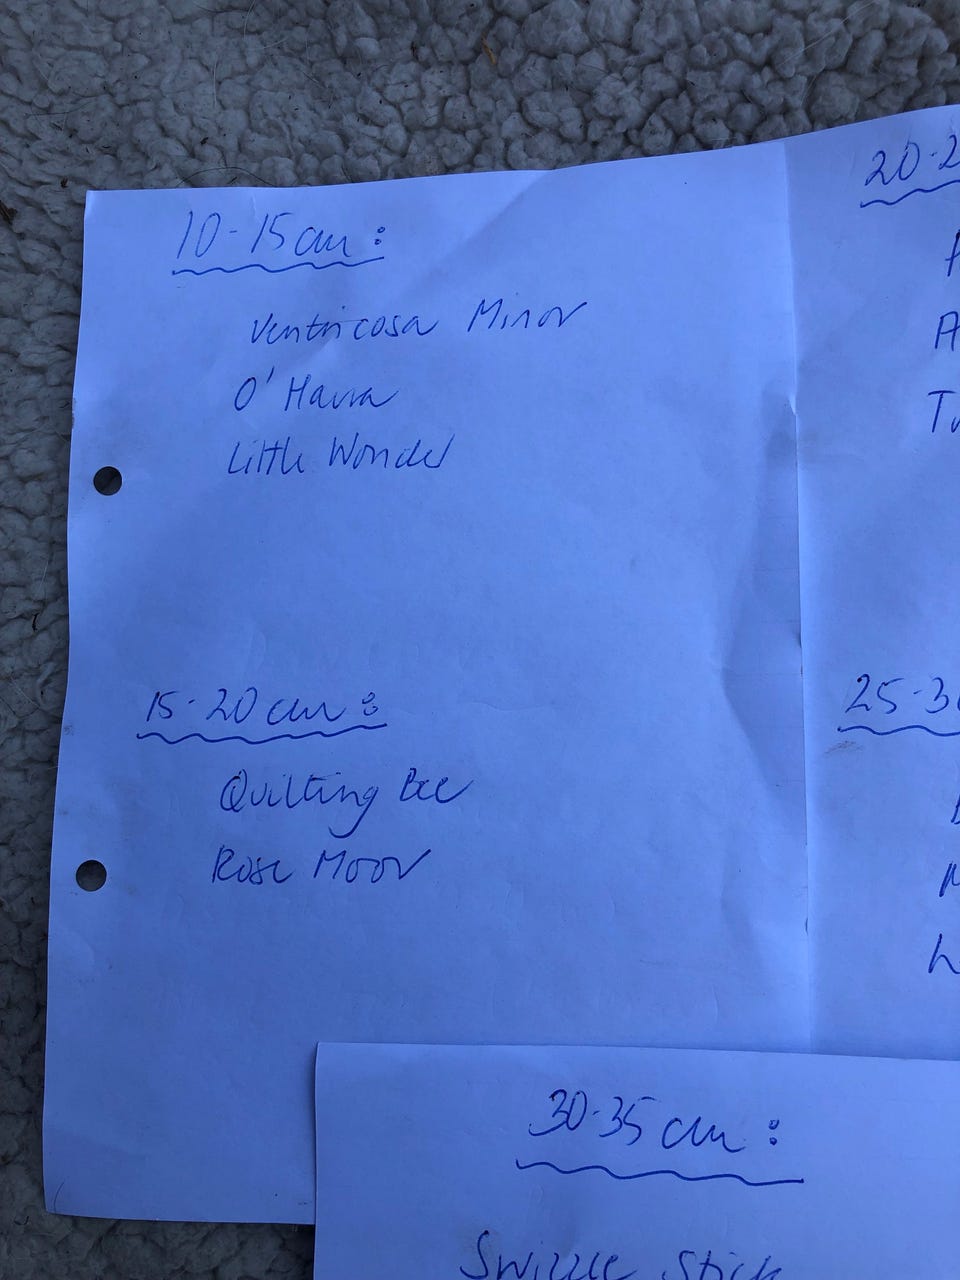 10-15cm:
Ventricosa Minor
O'Harra
Little Wonder
15-20cm:
Quilting Bee
Rose Moor
20-2
A
Tu
25-3
30-35cm:
Swizzle Stick